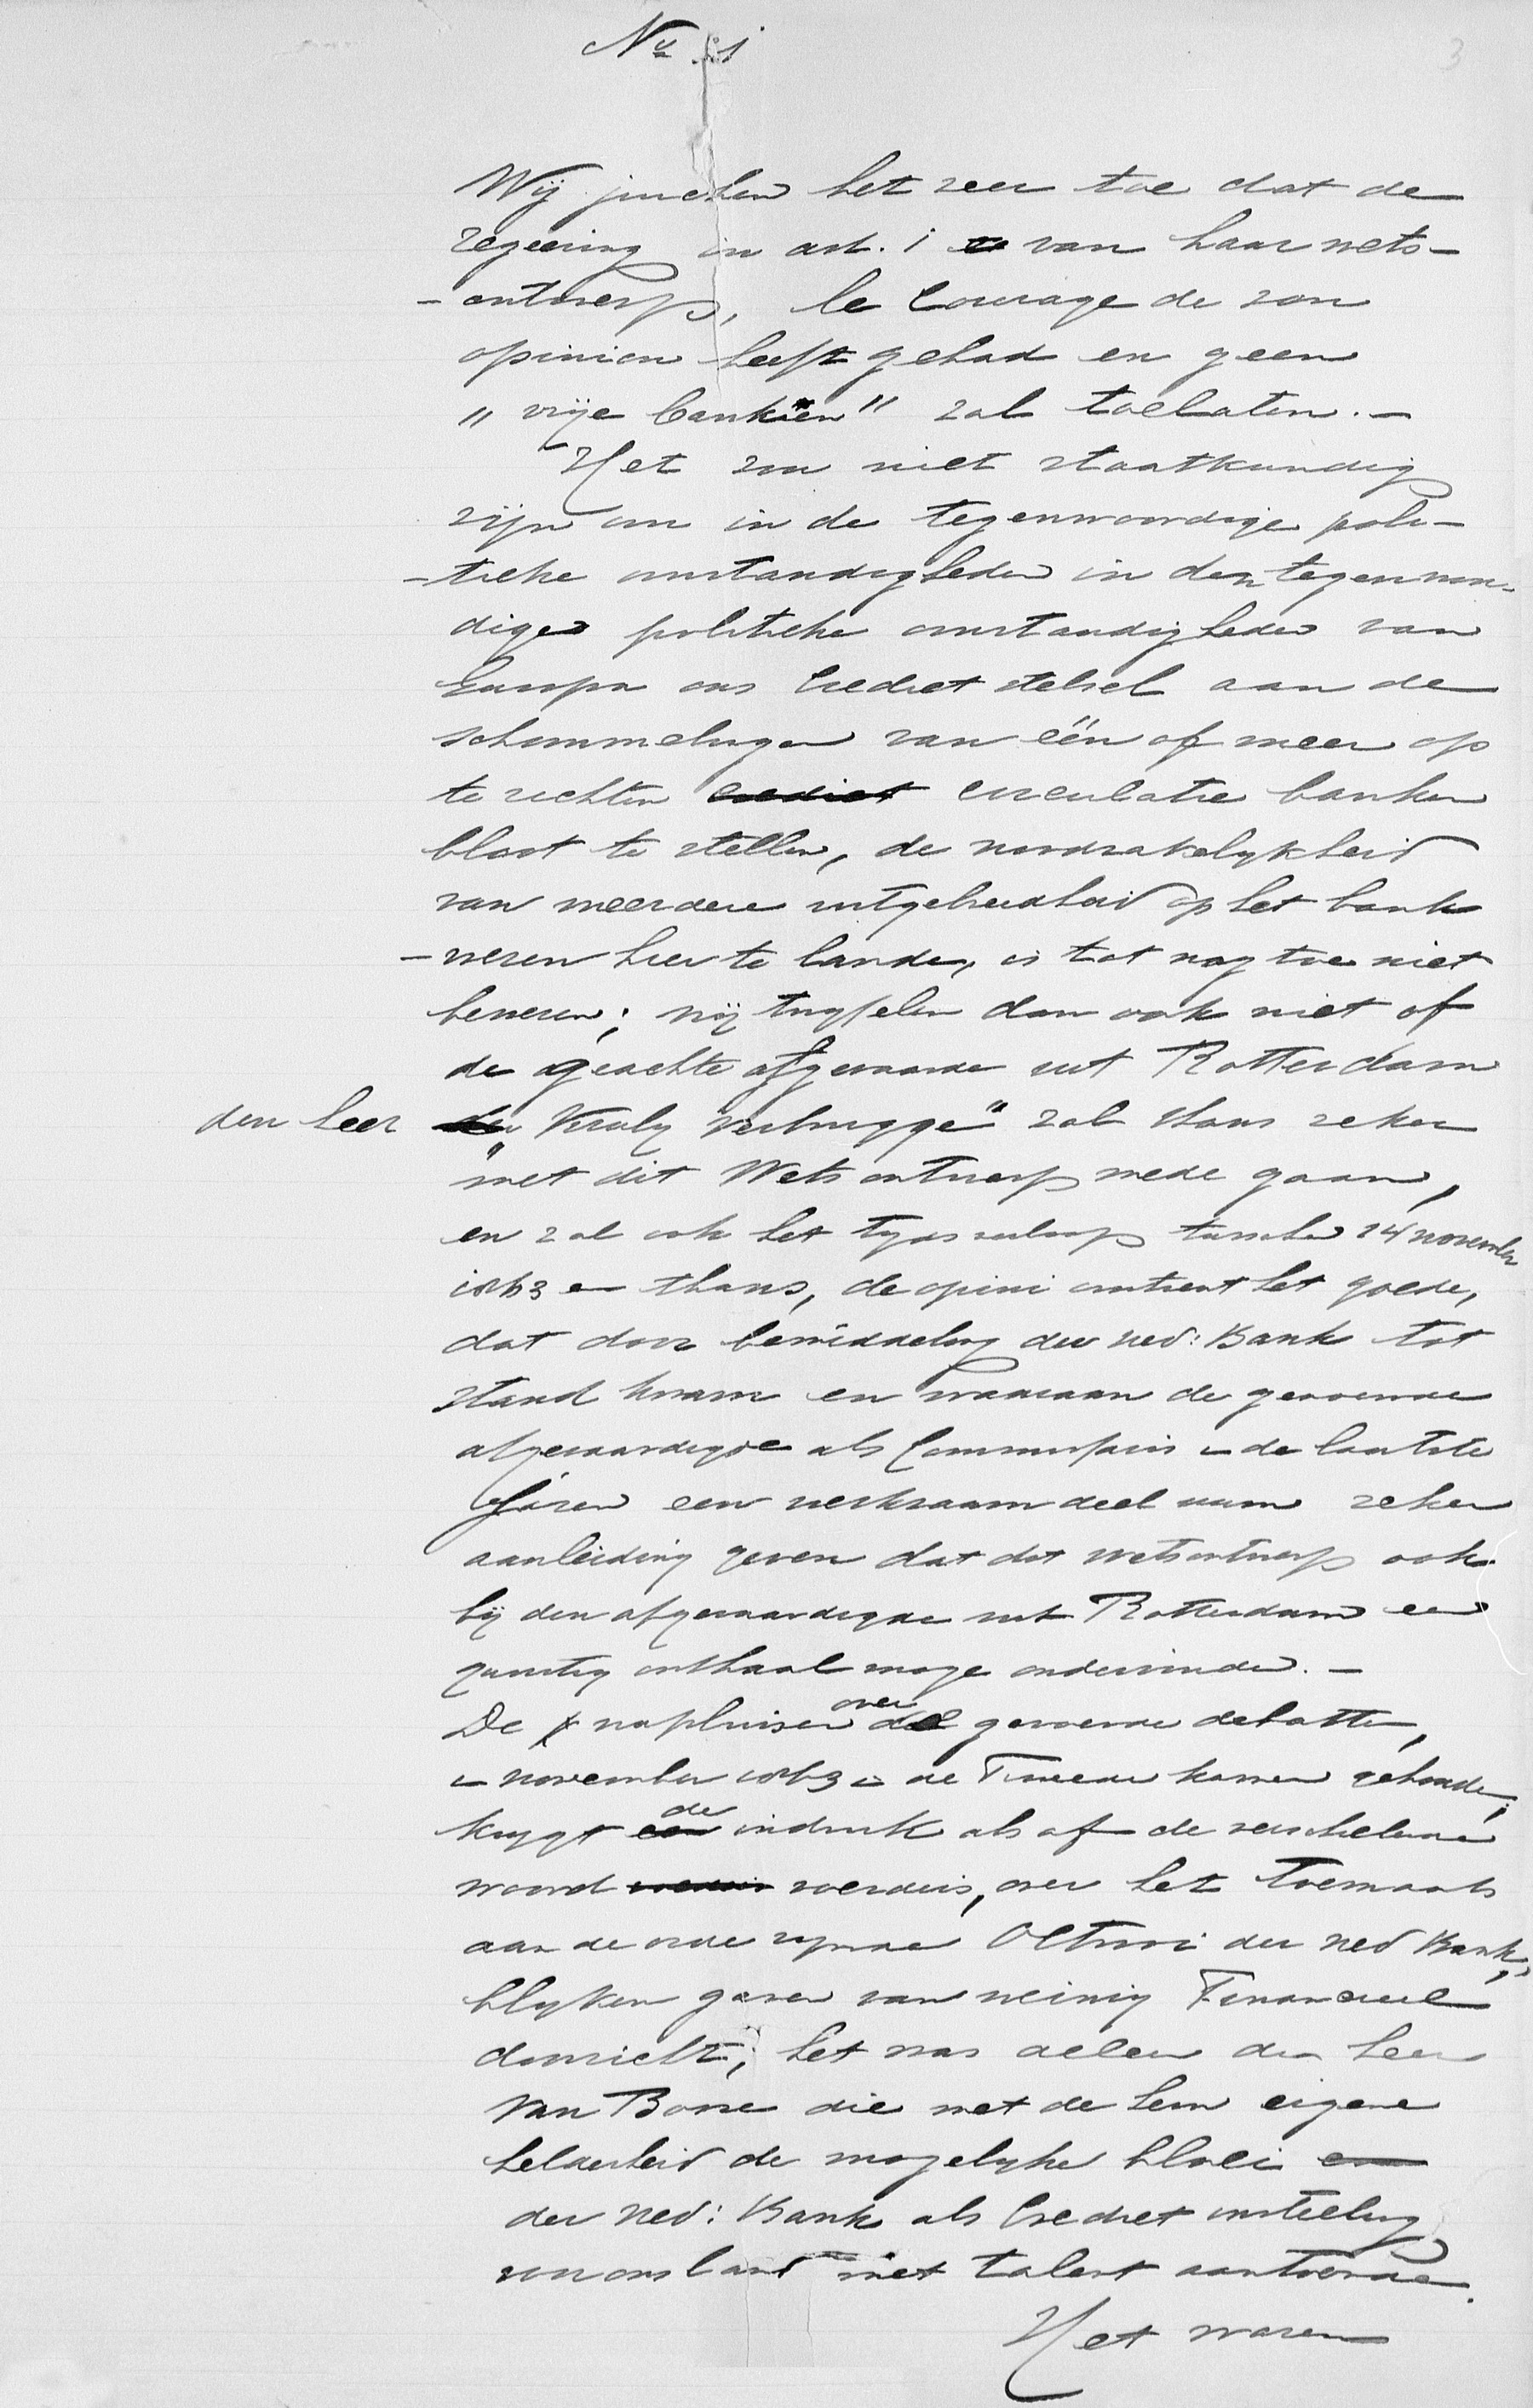 No 1
3
Wij juichen het zeer toe dat de
regeering in art. 1 van haar wets-
-ontwerp, le Courage de son
opinion heeft gehad en geen
„vrije banken" zal toelaten. -
Het zou niet staatkundig
zijn om in de tegenwoordige poli-
-tieke omstandigheden in den tegenwoor-
dige politieke omstandigheden van
Europa ons Crediet stelsel aan de
schommelingen van één of meer op
te rechten crediet circulatie banken
bloot te stellen, de noodzakelykheid
van meerdere uitgebreidheid op het bank
-wezen hier te lande, is tot nog toe niet
bewezen; wij twyfelen dan ook niet of
de geachte afgevaarde uit Rotterdam
den heer Viruly Verbrugge" zal thans zeker
met dit Wets ontwerp mede gaan,
en zal ook het tydsverloop tusschen 24 november
1863 en thans, de opini omtrent het goede,
dat door bemiddeling der Ned: Bank tot
stand kwam en waaraan de genoemde
afgevaardigde als Commissaris in de laatste
Jaren een werkzaam deel nam zeker
aanleiding geven dat dit wetsontwerp ook
bij den afgevaardigde uit Rotterdam een
gunstig onthaal moge ondervinden. -
De napluiser over de gevoerde debatten,
in november 1863 in de Tweede kamer gehouden,
krygt de indruk als of de verschillende
woord voerders, over het toenmaals
aan de orde zynde Octrooi der Ned Bank,
blyken gaven van weinig Financieel
doorzicht; het was alleen den heer
Van Bosse die met de hem eigene
helderheid de mogelyke bloei
der Ned: Bank als Crediet instelling
van ons land met talent aantoonde.
Het waren